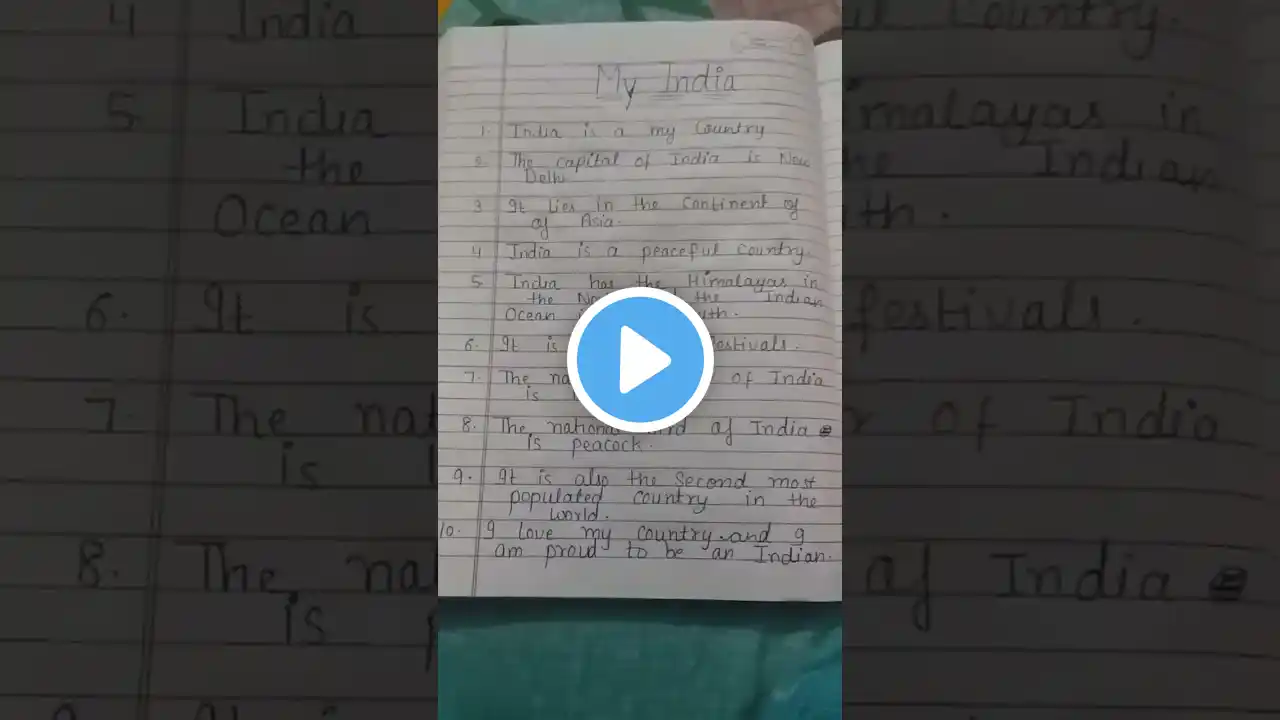 My India
1. India is a my Country
2. The capital of India is New
Delhi
3 It Lies in the Continent of
of Asia.
4 India is a peaceful Country.
5 India has the Himalayas in
the the Indian
Ocean
6. It is festivals.
7. The of India
is
8. The national bird of India
is peacock.
9. It is also the Second most
populated country in the
world.
10. I Love my country.and I
am proud to be an Indian.